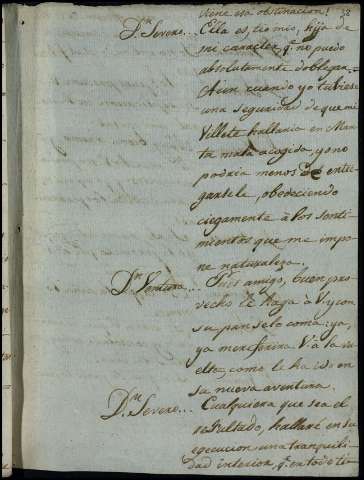 tiene esa obstinacion! 32
Dn. Severo... Ella es, tio mio, hija de
mi caracter qe. no puedo
absolutamente doblegar.
Aun cuando yo tubiese
una seguridad de que mi
Villete hallaria en Mari
ta mala acogida, yo no
podria menos de entre
garsele, obedeciendo
ciegamente à los senti
mientos que me impo
ne naturaleza.
Dn. Ventura... Pues amigo, buen pro
vecho le haga à V. y con
su pan se lo coma: ya,
ya me referira V. à la vu
elta, como le ha ido en
su nueva aventura.
Dn. Severo... Cualquiera que sea el
resultado, hallaré en su
egecucion una tranquili
dad interior, qe. en todo ti